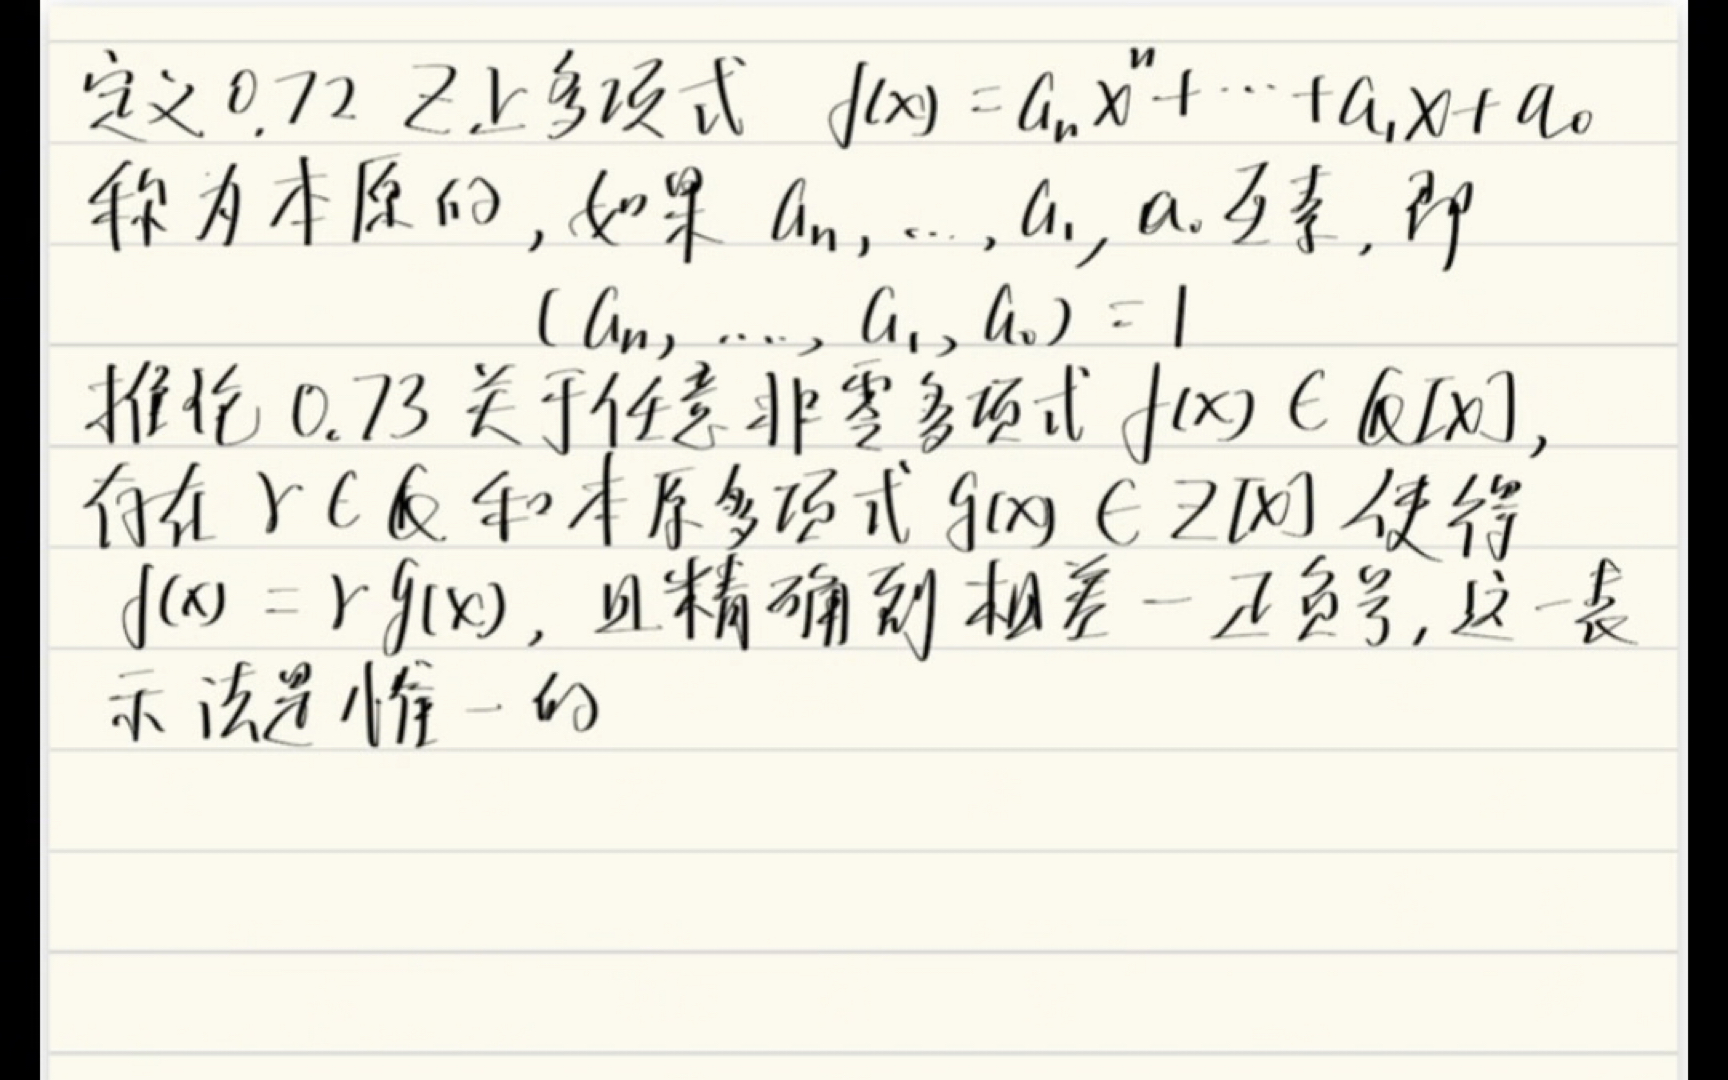 定义0.72 Z上多项式 f(x) = aₙxⁿ+…+a₁x+a₀
称为本原的,如果 aₙ, …, a₁, a₀互素, 即
(aₙ, …, a₁, a₀) = 1
推论0.73 关于任意非零多项式 f(x) ∈ Q[x],
存在 r ∈ Q 和本原多项式 g(x) ∈ Z[x] 使得
f(x) = r g(x), 且精确到相差一正负号, 这一表
示法是惟一的